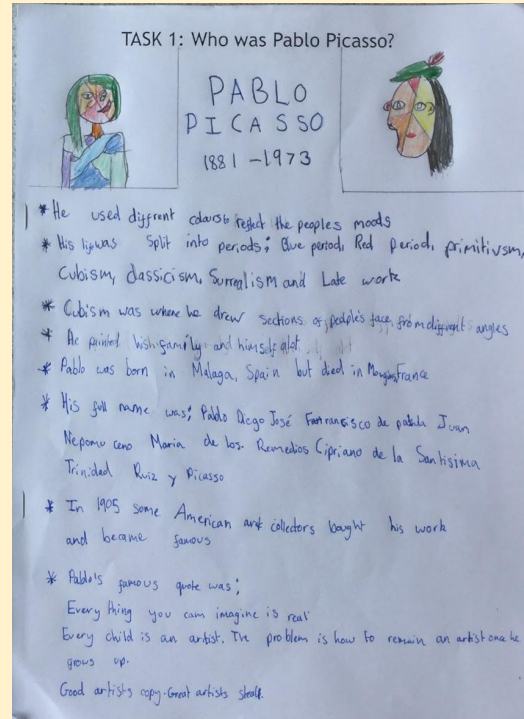 TASK 1: Who was Pablo Picasso?
PABLO
PICASSO
1881 -1973
* He used diffrent colours to reflect the peoples moods
* His life was Split into periods; Blue period, Red Period, primitivsm,
Cubism, classicism, Surrealism and Late work
* Cubism was where he drew sections of people's face, from different angles
* He painted his family and himself alot.
* Pablo was born in Malaga, Spain but died in Mougins, France
* His full name was; Pablo Diego José Francisco de paula Juan
Nepomuceno Maria de los. Remedios Cipriano de la Santisima
Trinidad Ruiz y Picasso
* In 1905 some American art collectors bought his work
and became famous
* Pablo's famous quote was;
Every thing you can imagine is real
Every child is an artist. The problem is how to remain an artist once he
grows up.
Good artists copy. Great artists steal.